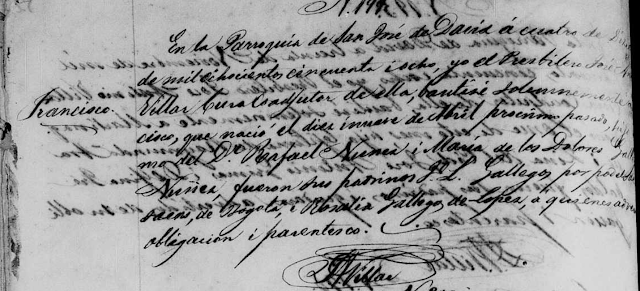 En la Parroquia de San José de David á cuatro de
de mil ochocientos cincuenta i ocho, yo el Presbítero José
Francisco.
Villar Cura Coadjutor de ella, bautisé solemnemente
cisco, que nació el diez i nueve de Abril procsimo pasado, hijo
mo del Dr. Rafael Nuñez i María de los Dolores
Nuñez, fueron sus padrinos J. L. Gallegos por poder
de Bogotá, i Rosalia Gallegos de Lopez, á quienes
obligacion i parentesco.
Villar